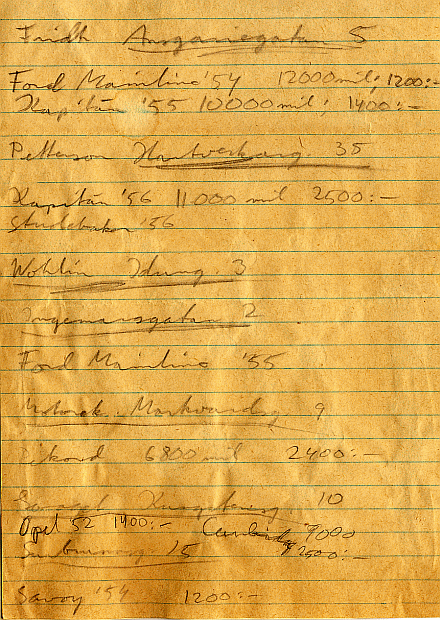 Fridh Ansgariegatan 5
Ford Mainline '54 12000 mil; 1200:-
Kapitän '55 10000 mil; 1400:-
Petterson 35
Kapitän '56 11000 mil 2500:-
Studebaker '56
Wohlin Idung. 3
Ingemarsgatan 2
Ford Mainline '55
Markvardsg. 9
Rekord 6800 mil 2400:-
10
Opel 52 1400:- 9000
2500:-
15
Savoy '54 1200:-